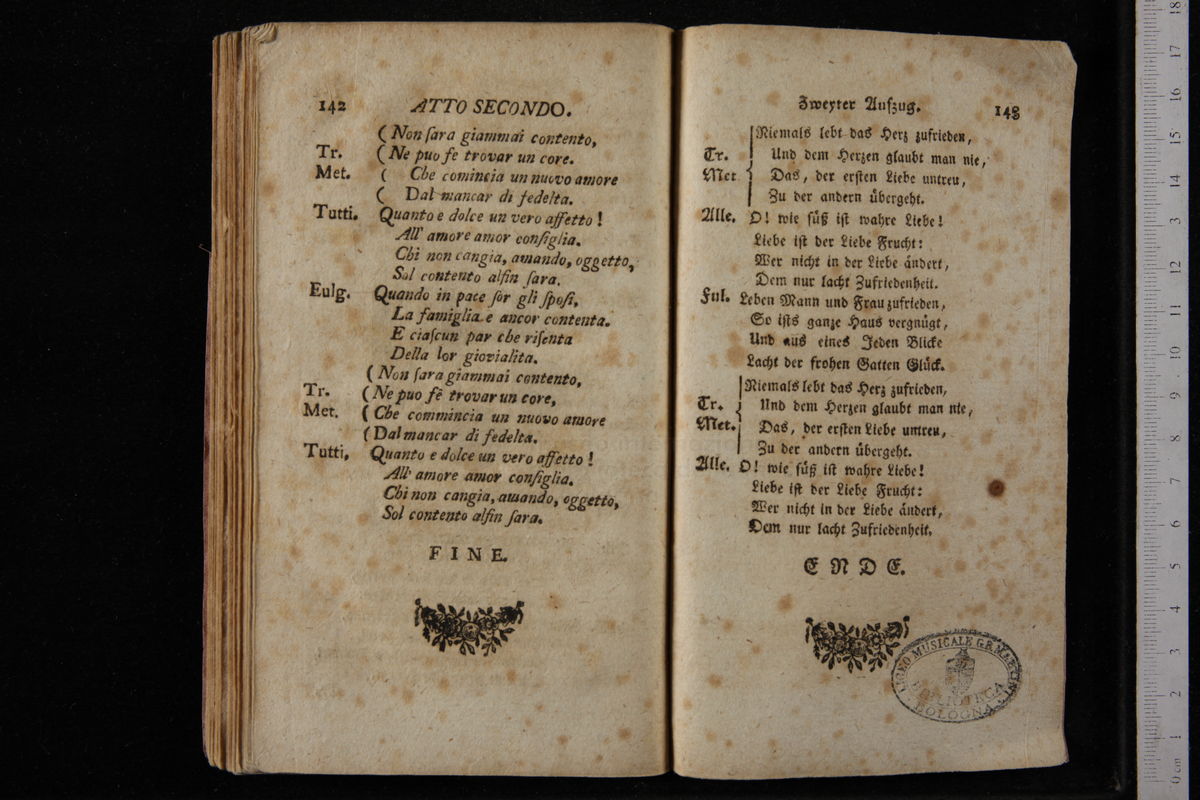 142 ATTO SECONDO.
( Non ſara giammai contento,
Tr. ( Ne puo fe trovar un core.
Met. ( Che comincia un nuovo amore
( Dal mancar di fedelta.
Tutti. Quanto e dolce un vero affetto !
All' amore amor conſiglia.
Chi non cangia, amando, oggetto,
Sol contento alfin ſara.
Eulg. Quando in pace ſor gli ſpoſi,
La famiglia e ancor contenta.
E ciaſcun par che riſenta
Della lor giovialita.
( Non ſara giammai contento,
Tr. ( Ne puo fê trovar un core,
Met. ( Che commincia un nuovo amore
( Dal mancar di fedelta.
Tutti, Quanto e dolce un vero affetto !
All' amore amor conſiglia.
Chi non cangia, amando, oggetto,
Sol contento alfin ſara.
FINE.
Zweyter Aufzug. 143
Niemals lebt das Herz zufrieden,
Tr. Und dem Herzen glaubt man nie,
Met. Das, der erſten Liebe untreu,
Zu der andern übergeht.
Alle. O! wie ſüß iſt wahre Liebe!
Liebe iſt der Liebe Frucht:
Wer nicht in der Liebe ändert,
Dem nur lacht Zufriedenheit.
Ful. Leben Mann und Frau zufrieden,
So iſts ganze Haus vergnügt,
Und aus eines Jeden Blicke
Lacht der frohen Gatten Glück.
Niemals lebt das Herz zufrieden,
Tr. Und dem Herzen glaubt man nie,
Met. Das, der erſten Liebe untreu,
Zu der andern übergeht.
Alle. O! wie ſüß iſt wahre Liebe!
Liebe iſt der Liebe Frucht:
Wer nicht in der Liebe ändert,
Dem nur lacht Zufriedenheit.
ENDE.
LICEO MUSICALE G.B. MARTINI
BIBLIOTECA
BOLOGNA
0 cm 1 2 3 4 5 6 7 8 9 10 11 12 13 14 15 16 17 18